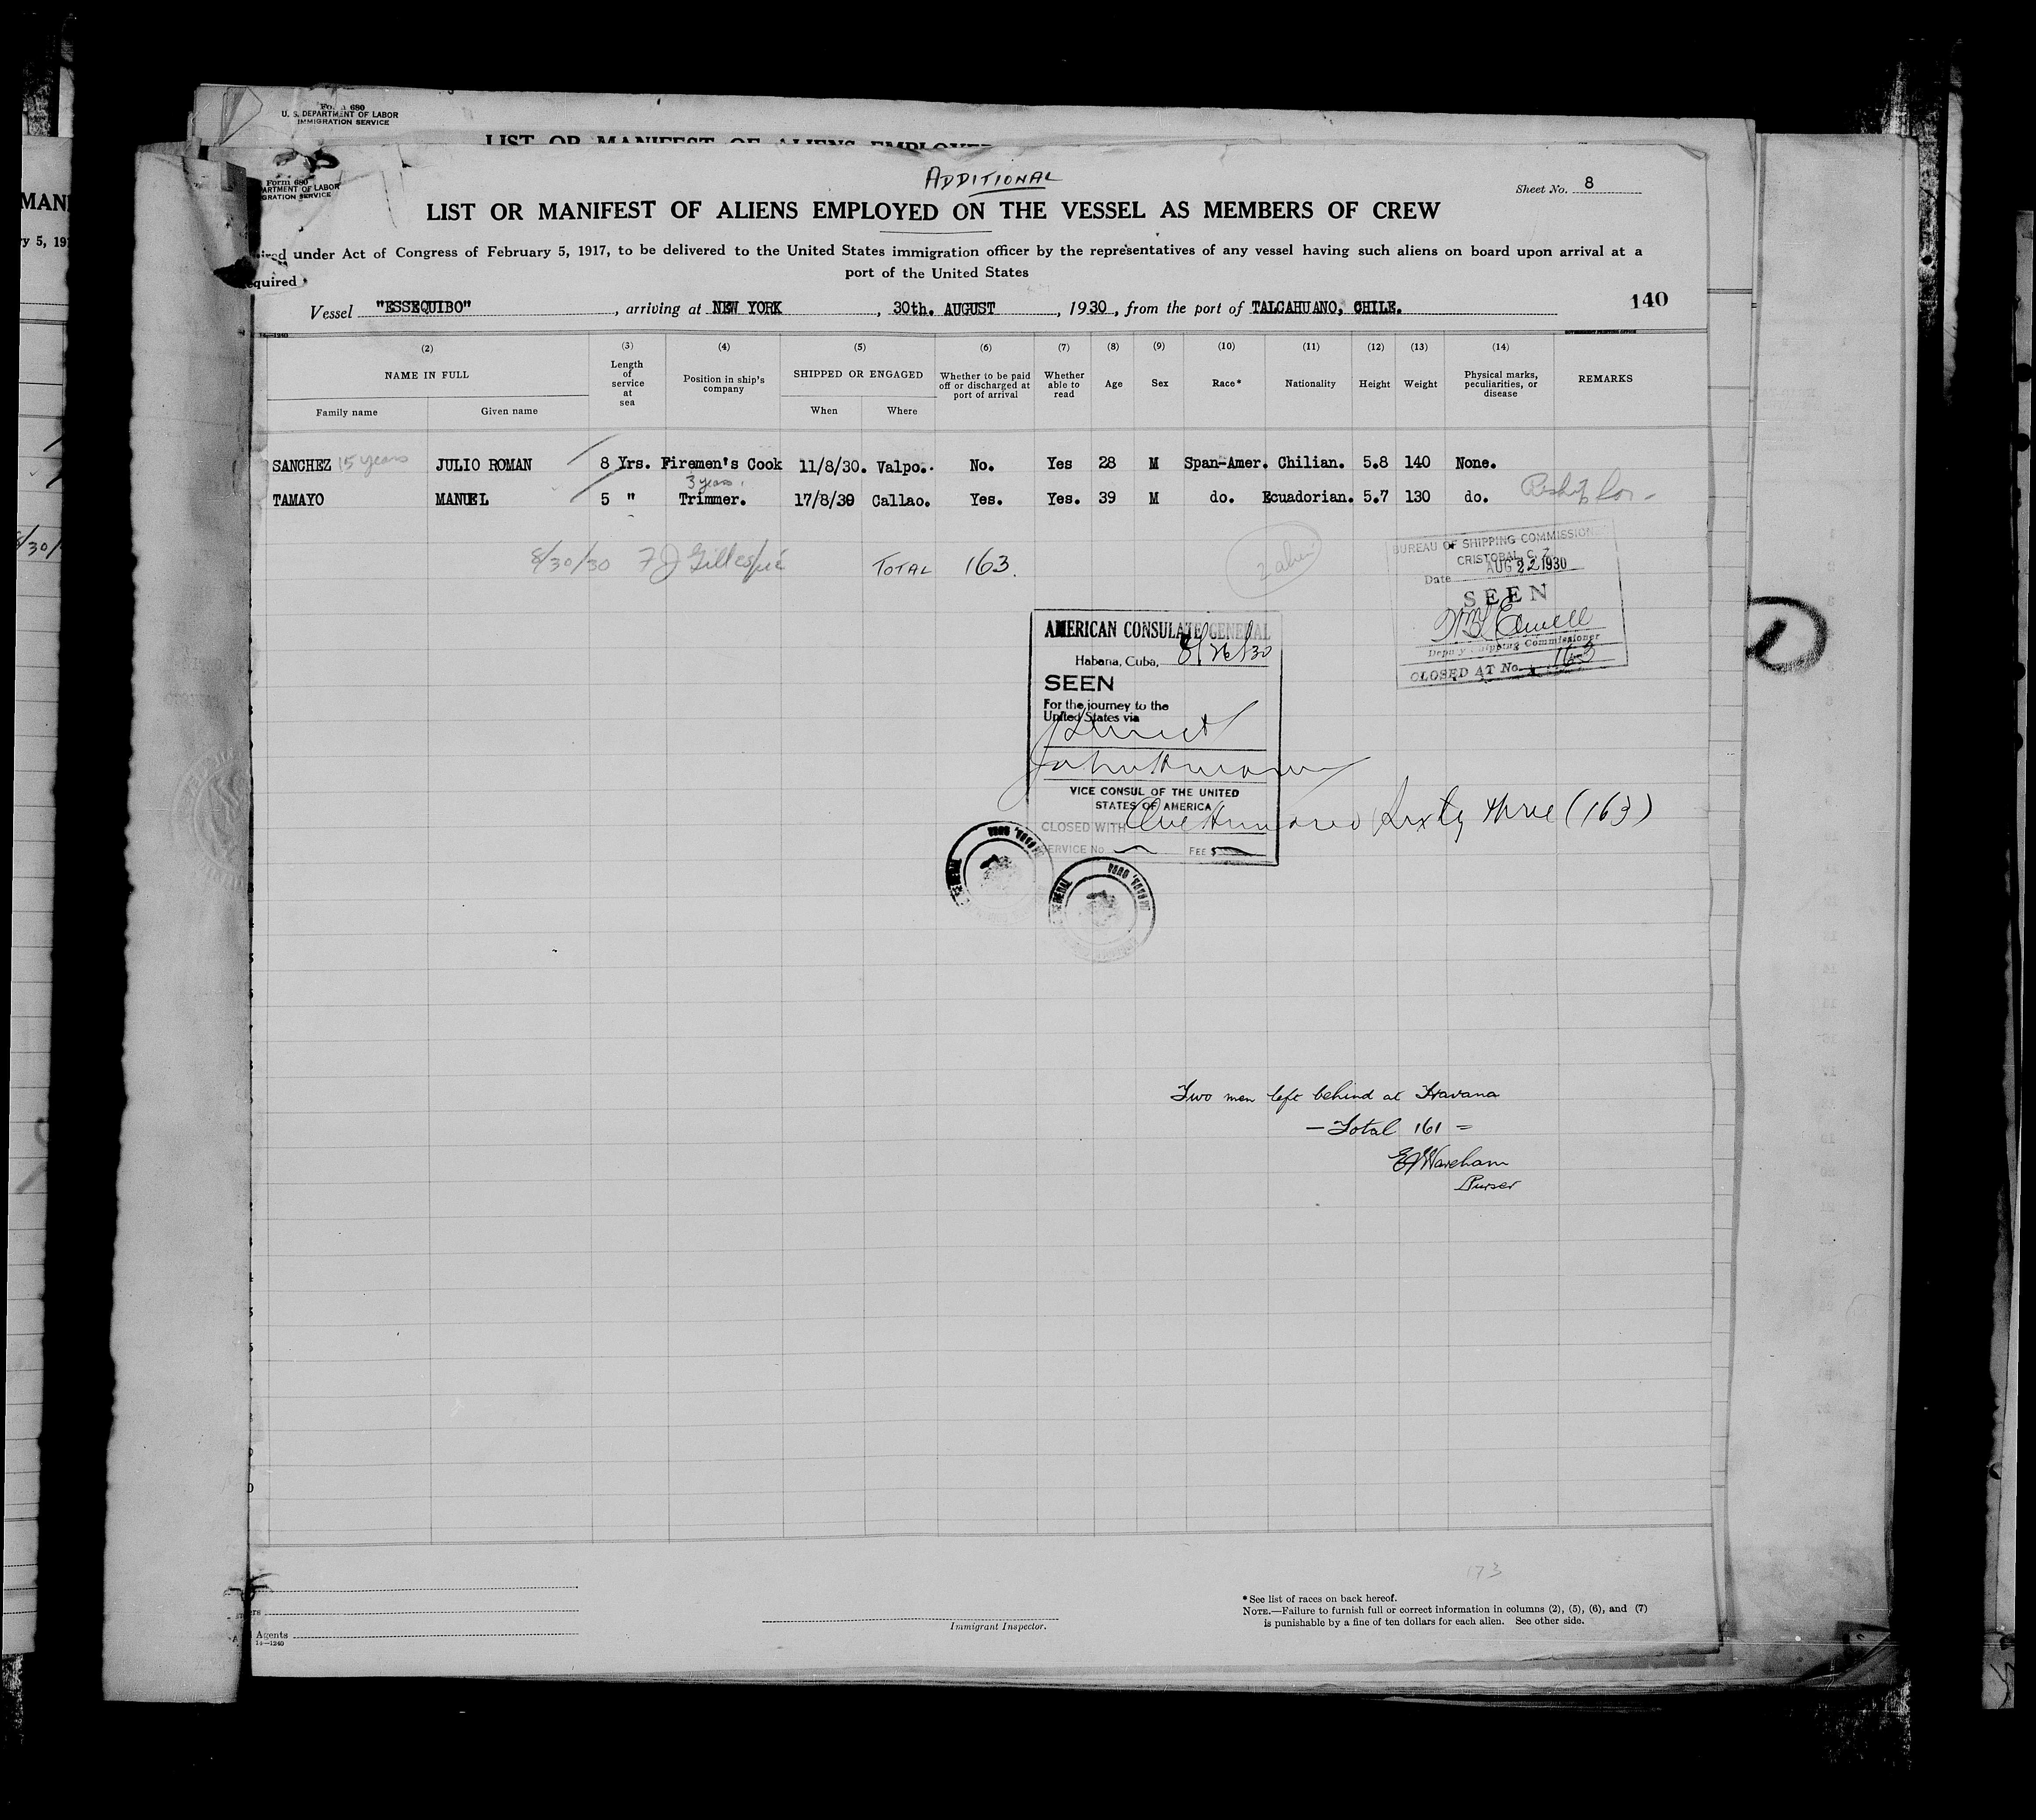 Form 680
U. S. DEPARTMENT OF LABOR
IMMIGRATION SERVICE
LIST OR MANIFEST OF ALIENS EMPLOYED
MAN
y 5, 191
8/30/
Form 680
ARTMENT OF LABOR
GRATION SERVICE
ADDITIONAL
Sheet No. 8
LIST OR MANIFEST OF ALIENS EMPLOYED ON THE VESSEL AS MEMBERS OF CREW
ired under Act of Congress of February 5, 1917, to be delivered to the United States immigration officer by the representatives of any vessel having such aliens on board upon arrival at a
port of the United States
equired
Vessel "ESSEQUIBO", arriving at NEW YORK, 30th. AUGUST, 1930, from the port of TALCAHUANO, CHILE.
140
14—1240
GOVERNMENT PRINTING OFFICE
(2) (3) (4) (5) (6) (7) (8) (9) (10) (11) (12) (13) (14)
NAME IN FULL Length of service at sea Position in ship's company SHIPPED OR ENGAGED Whether to be paid off or discharged at port of arrival Whether able to read Age Sex Race* Nationality Height Weight Physical marks, peculiarities, or disease REMARKS
Family name Given name When Where
SANCHEZ 15 years JULIO ROMAN 8 Yrs. Firemen's Cook 11/8/30. Valpo. No. Yes 28 M Span-Amer. Chilian. 5.8 140 None.
3 years
TAMAYO MANUEL 5 " Trimmer. 17/8/30 Callao. Yes. Yes. 39 M do. Ecuadorian. 5.7 130 do. Reship for
8/30/30 F J Gillespie TOTAL 163.
2 alien
BUREAU OF SHIPPING COMMISSIONER
CRISTOBAL C. Z.
Date AUG 22 1930
SEEN
Deputy Shipping Commissioner
CLOSED AT No. 163
AMERICAN CONSULATE GENERAL
Habana, Cuba, 8/26/30
SEEN
For the journey to the
United States via
Direct
VICE CONSUL OF THE UNITED
STATES OF AMERICA
CLOSED WITH One Hundred Sixty three (163)
SERVICE No. FEE $
HABANA, CUBA
GENERAL
HABANA, CUBA
GENERAL
Two men left behind at Havana
— Total 161 =
E J Wareham
Purser
173
Agents
14—1240
Immigrant Inspector.
*See list of races on back hereof.
NOTE.—Failure to furnish full or correct information in columns (2), (5), (6), and (7)
is punishable by a fine of ten dollars for each alien. See other side.